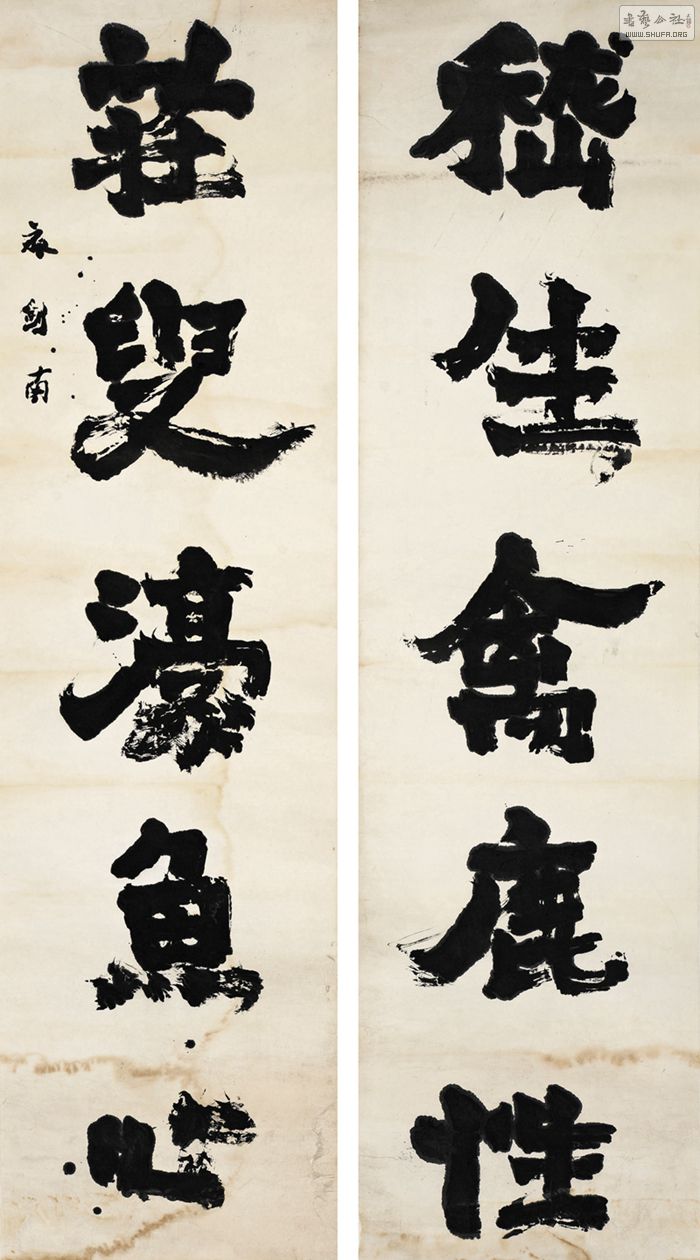 嵇生禽鹿性
莊叟濠魚心
南
書藝公社
WWW.SHUFA.ORG